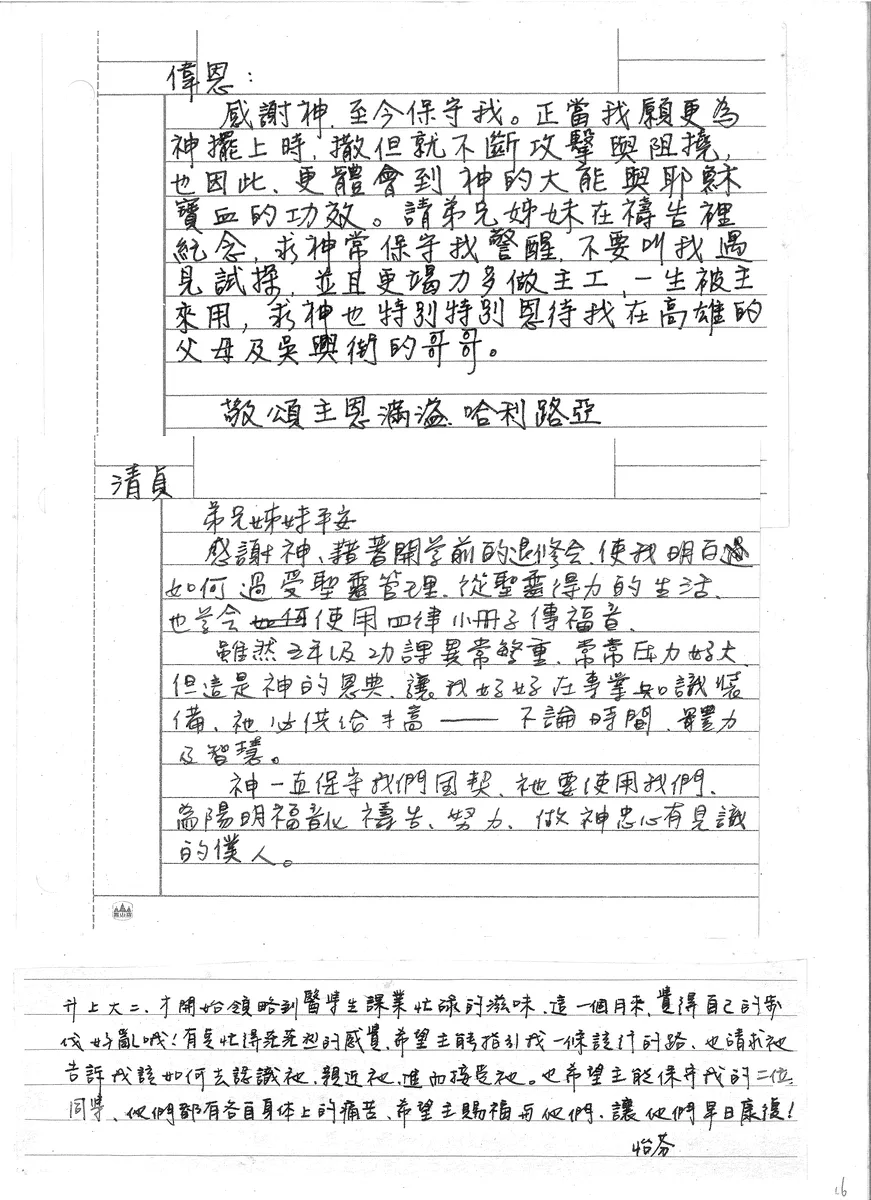 偉恩：
感謝神，至今保守我。正當我願更為
神擺上時，撒但就不斷攻擊與阻撓，
也因此、更體會到神的大能與耶穌
寶血的功效。請弟兄姊妹在禱告裡
紀念，求神常保守我警醒，不要叫我遇
見試探，並且更竭力多做主工，一生被主
來用，求神也特別特別恩待我在高雄的
父母及吳興街的哥哥。
敬頌主恩滿溢 哈利路亞
清貞
弟兄姊妹平安
感謝神、藉著開学前的退修会，使我明白
如何過受聖靈管理、從聖靈得力的生活、
也学会使用四律小冊子傳福音、
雖然五年级功課異常繁重、常常压力好大、
但這是神的恩典、讓我好好在專業知識裝
備、祂必供給丰富——不論時間、體力
及智慧。
神一直保守我們团契、祂要使用我們、
為陽明福音化禱告、努力、做神忠心有見識
的僕人。
升上大二、才開始領略到醫學生課業忙碌的滋味、這一個月來，覺得自己的步
伐好亂哦！有氣忙得茫茫然的感覺，希望主能指引我一條該行的路、也請求祂
告訴我該如何去認識祂、親近祂、進而接受祂。也希望主能保守我的二位
同學、他們都有各自身体上的痛苦、希望主賜福与他們、讓他們早日康復！
怡芬
16